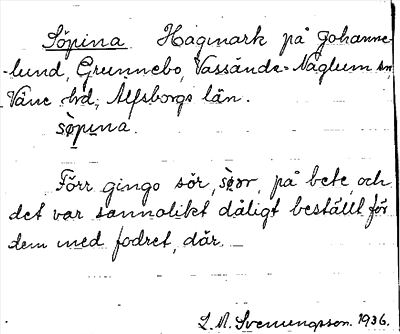 Söpina Hagmark på Johanne-
lund, Grunnebo, Vassända-Naglum sn,
Väne hrd, Älfsborgs län.
sòpina.
Förr gingo sör, sö̀r, på bete, och
det var sannolikt dåligt beställt för
dem med fodret, där.
L. M. Svenungsson. 1936.